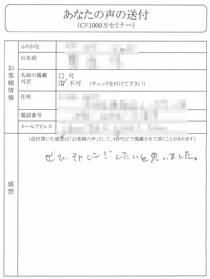 あなたの声の送付
(CF1000万セミナー)
ふりがな
お名前
お客様情報
名前の掲載可否
□ 可
☑ 不可 (チェックを付けて下さい)
住所
電話番号
メールアドレス
(送付頂いた感想は「お客様の声」として、HPなどで掲載させて頂くことがあります)
感想
ぜひチャレンジしたいと思いました。